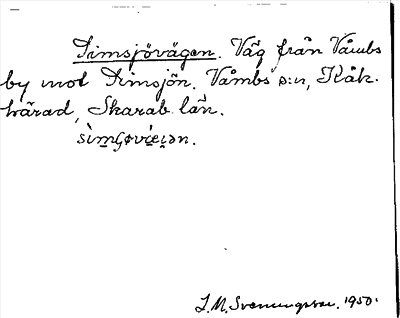 Simsjövägen. Väg från Våmbs
by mot Simsjön. Våmbs s:n, Kåk.
härad, Skarab. län.
sìmʃøvi̯ɛi̯ən.
S.M. Svenungsson. 1950.